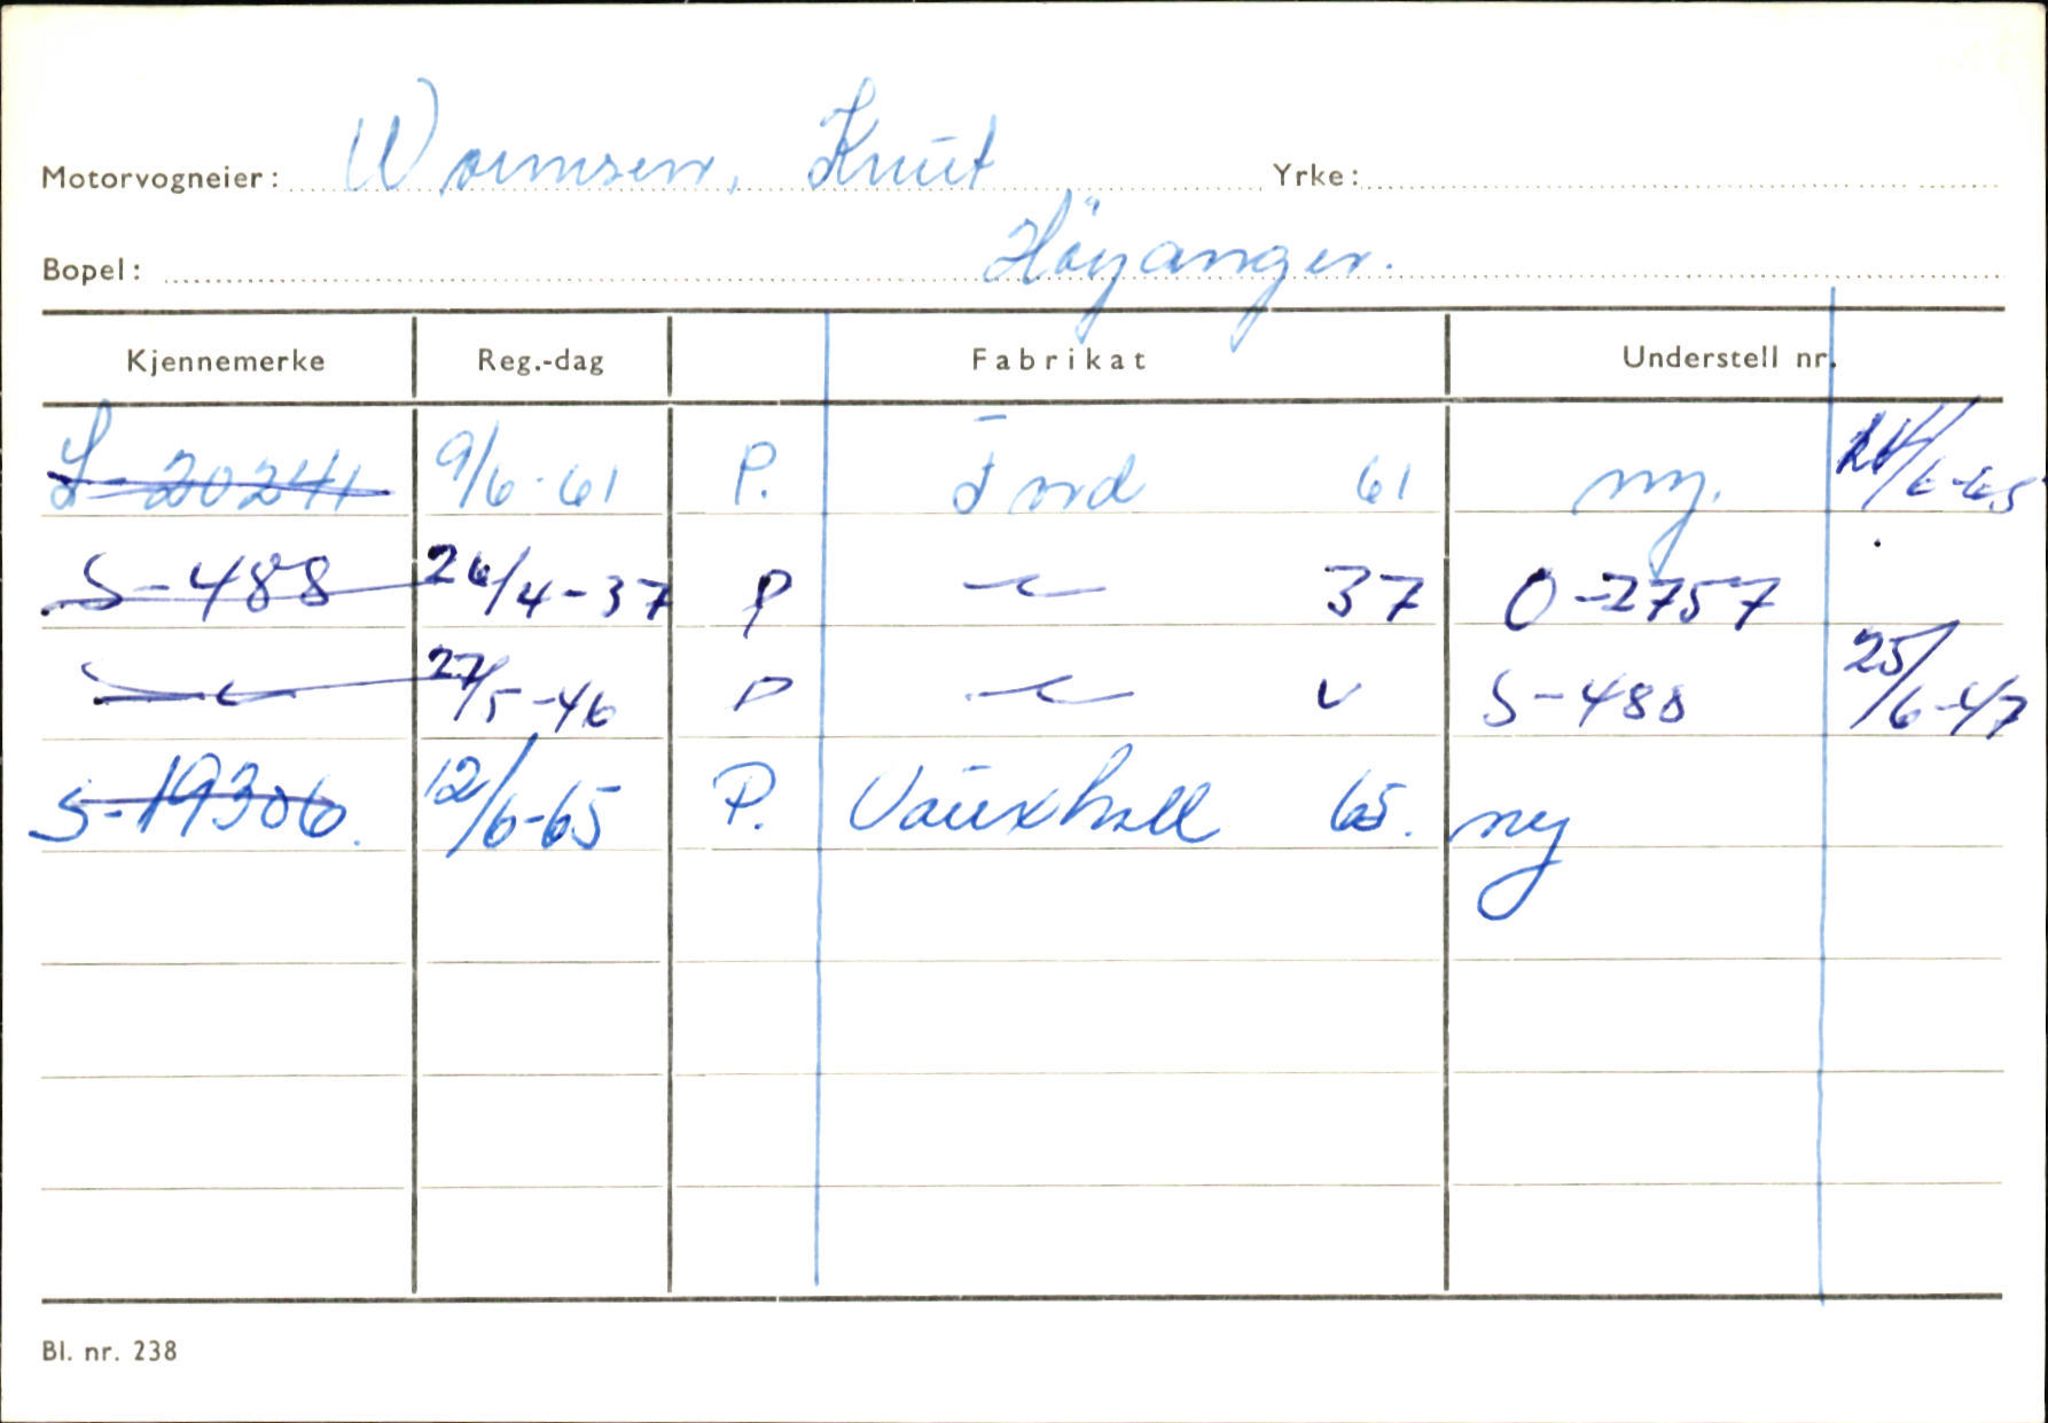 Motorvogneier: Wormsen, Knut Yrke:
Bopel: Höyanger.
Kjennemerke Reg.-dag Fabrikat Understell nr.
S-20241 9/6-61 P. Ford 61 ny. 24/6-65
S-488 26/4-37 P —〃— 37 O-2757
—〃— 27/5-46 P —〃— 〃 S-488 25/6-47
S-19306. 12/6-65 P. Vauxhall 65. ny
Bl. nr. 238